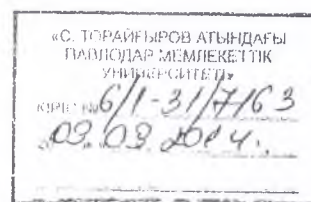 «С. ТОРАЙҒЫРОВ АТЫНДАҒЫ
ПАВЛОДАР МЕМЛЕКЕТТІК
УНИВЕРСИТЕТІ»
КІРІС № 6/1-31/7163
«03» 03 2014.